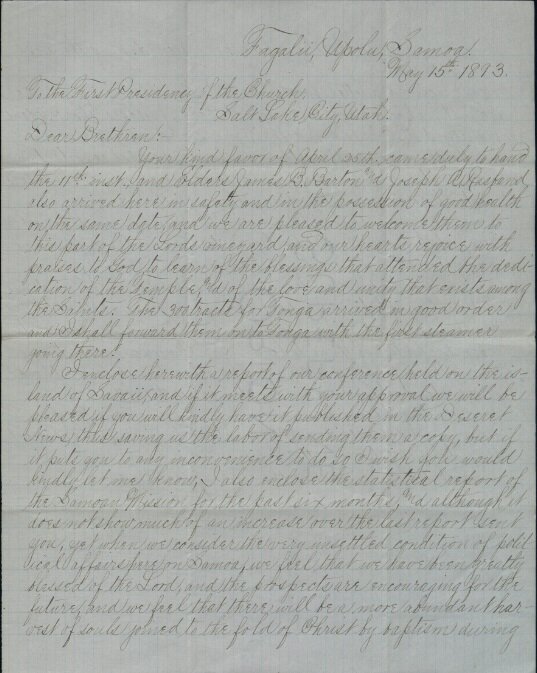 Fagalii, Upolu, Samoa.
May 15th 1893.
To the First Presidency of the Church.
Salt Lake City, Utah.
Dear Brethren:-
Your kind favor of April 25th, came duly to hand
the 11th inst. and Elders James B. Barton, & Joseph A. Rasband,
also arrived here in safety and in the possession of good health
on the same date, and we are pleased to welcome them to
this part of the Lords vineyard, and our hearts rejoice with
praises to God to learn of the blessings that attended the dedi-
cation of the Temple, & of the love and unity that exists among
the Saints. The 30 tracts for Tonga arrived in good order
and I shall forward them on to Tonga with the first steamer
going there.
I enclose herewith a report of our conference held on the is-
land of Savaii, and if it meets with your approval we will be
pleased if you will kindly have it published in the Deseret
News, thus saving us the labor of sending them a copy, but if
it puts you to any inconvenience to do so I wish you would
kindly let me know, I also enclose the statistical report of
the Samoan Mission for the past six months, and although it
does not show much of an increase over the last report sent
you, yet when we consider the very unsettled condition of polit-
ical affairs here on Samoa, we feel that we have been greatly
blessed of the Lord, and the prospects are encouraging for the
future, and we feel that there will be a more abundant har-
vest of souls joined to the fold of Christ by baptism during